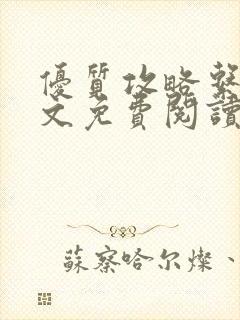 優質攻略繫
文免費閱讀
蘇察哈尔燦、